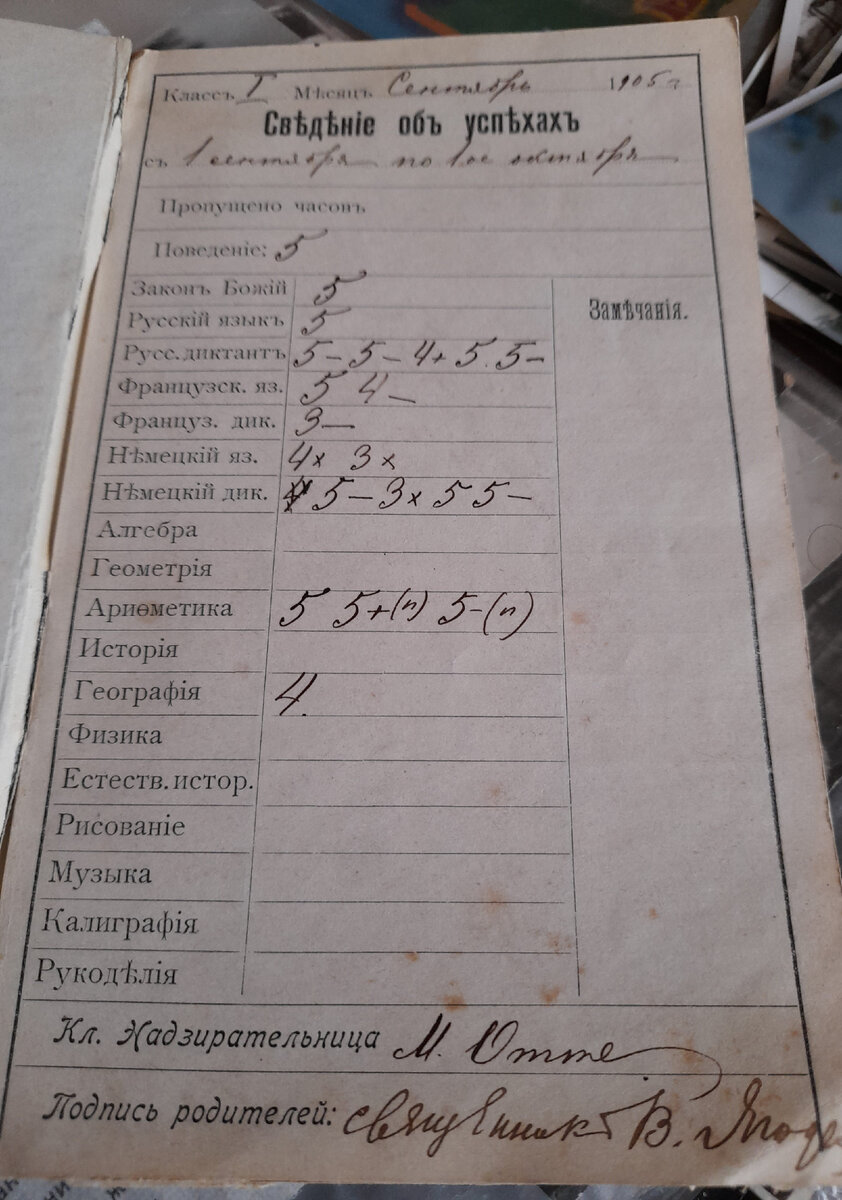 Классъ I Мѣсяцъ Сентябрь 1905 г
Свѣдѣніе объ успѣхахъ
съ 1 сентября по 1ое октября
Пропущено часовъ
Поведеніе: 5
Замѣчанія.
Законъ Божій 5
Русскій языкъ 5
Русс. диктантъ 5- 5- 4+ 5. 5-
Французск. яз. 5 4-
Француз. дик. 3-
Нѣмецкій яз. 4× 3×
Нѣмецкій дик. 5- 3× 5 5-
Алгебра
Геометрія
Ариѳметика 5 5+(п) 5-(п)
Исторія
Географія 4.
Физика
Естеств. истор.
Рисованіе
Музыка
Калиграфія
Рукодѣлія
Кл. Надзирательница М. Отте
Подпись родителей: священникъ В.